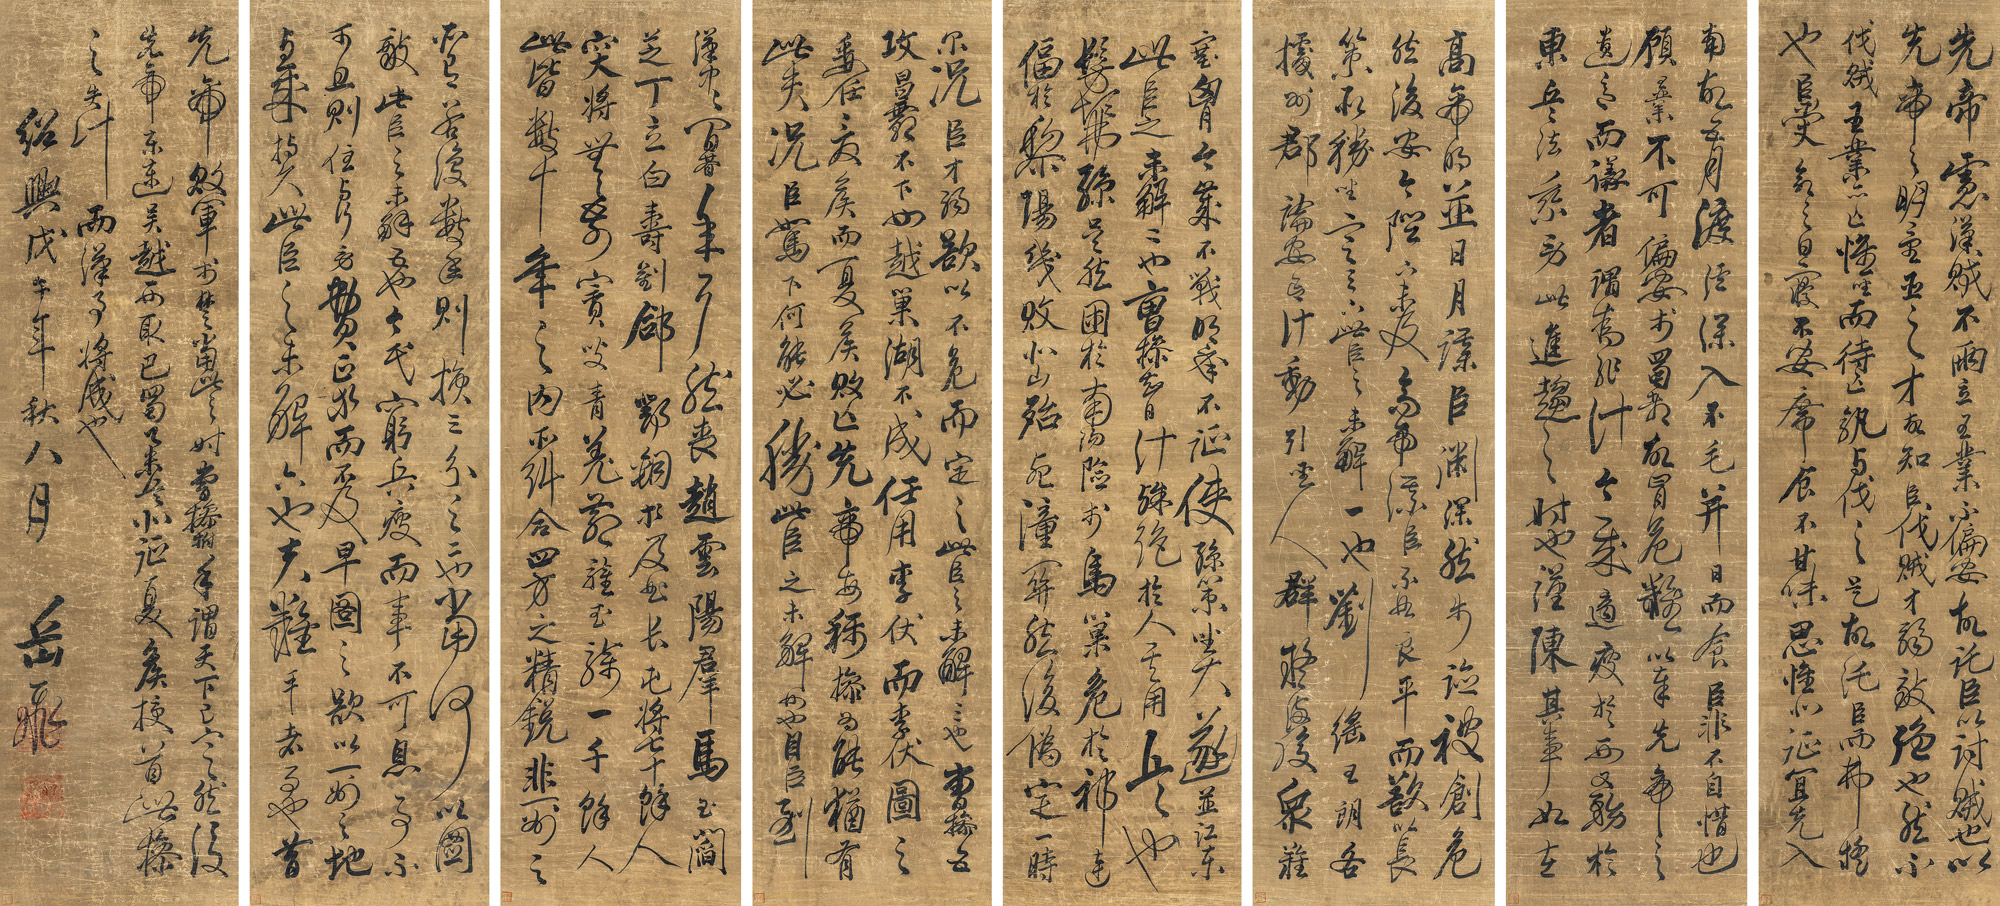 先帝慮漢賊不兩立王業不偏安故託臣以討賊也以
先帝之明量臣之才故知臣伐賊才弱敵強也然不
伐賊王業亦亡惟坐而待亡孰與伐之是故託臣而弗疑
也臣受命之日寢不安席食不甘味思惟北征宜先入
南故五月渡瀘深入不毛并日而食臣非不自惜也
顧業不可偏安於蜀都故冒危難以奉先帝之
遺意而議者謂為非計今賊適疲於西又務於
東兵法乘勞此進趨之時也謹陳其事如左
高帝明並日月謀臣淵深然涉險被創危
然後安今陛下未及高帝謀臣不如良平而欲以長
策取勝坐定天下此臣之未解一也劉繇王朗各
據州郡論安言計動引聖人群疑滿腹眾難
塞胸今歲不戰明年不征使孫策坐大遂並江東
此臣之未解二也曹操智計殊絕於人其用兵也
髣髴孫吳然困於南陽險於烏巢危於祁連
偪於黎陽幾敗北山殆死潼關然後偽定一時
爾況臣才弱欲以不危而定之此臣之未解三也曹操五
攻昌霸不下四越巢湖不成任用李伏而李伏圖之
委任夏侯而夏侯敗亡先帝每稱操為能猶有
此失況臣駑下何能必勝此臣之未解四也自臣到
漢中中間朞年耳然喪趙雲陽群馬玉閻
芝丁立白壽劉郃鄧銅等及曲長屯將七十餘人
突將無前賨叟青羌散騎武騎一千餘人
此皆數十年之內所糾合四方之精銳非一州之
所有若復數年則損三分之二也當何以圖
敵此臣之未解五也今民窮兵疲而事不可息事不
可息則住與行勞費正等而不及早圖之欲以一州之地
與賊持久此臣之未解六也夫難平者事也昔
先帝敗軍於楚當此之時曹操拊手謂天下已定然後
先帝東連吳越西取巴蜀舉兵北征夏侯授首此操
之失計而漢事將成也
紹興戊午年秋八月 岳飛